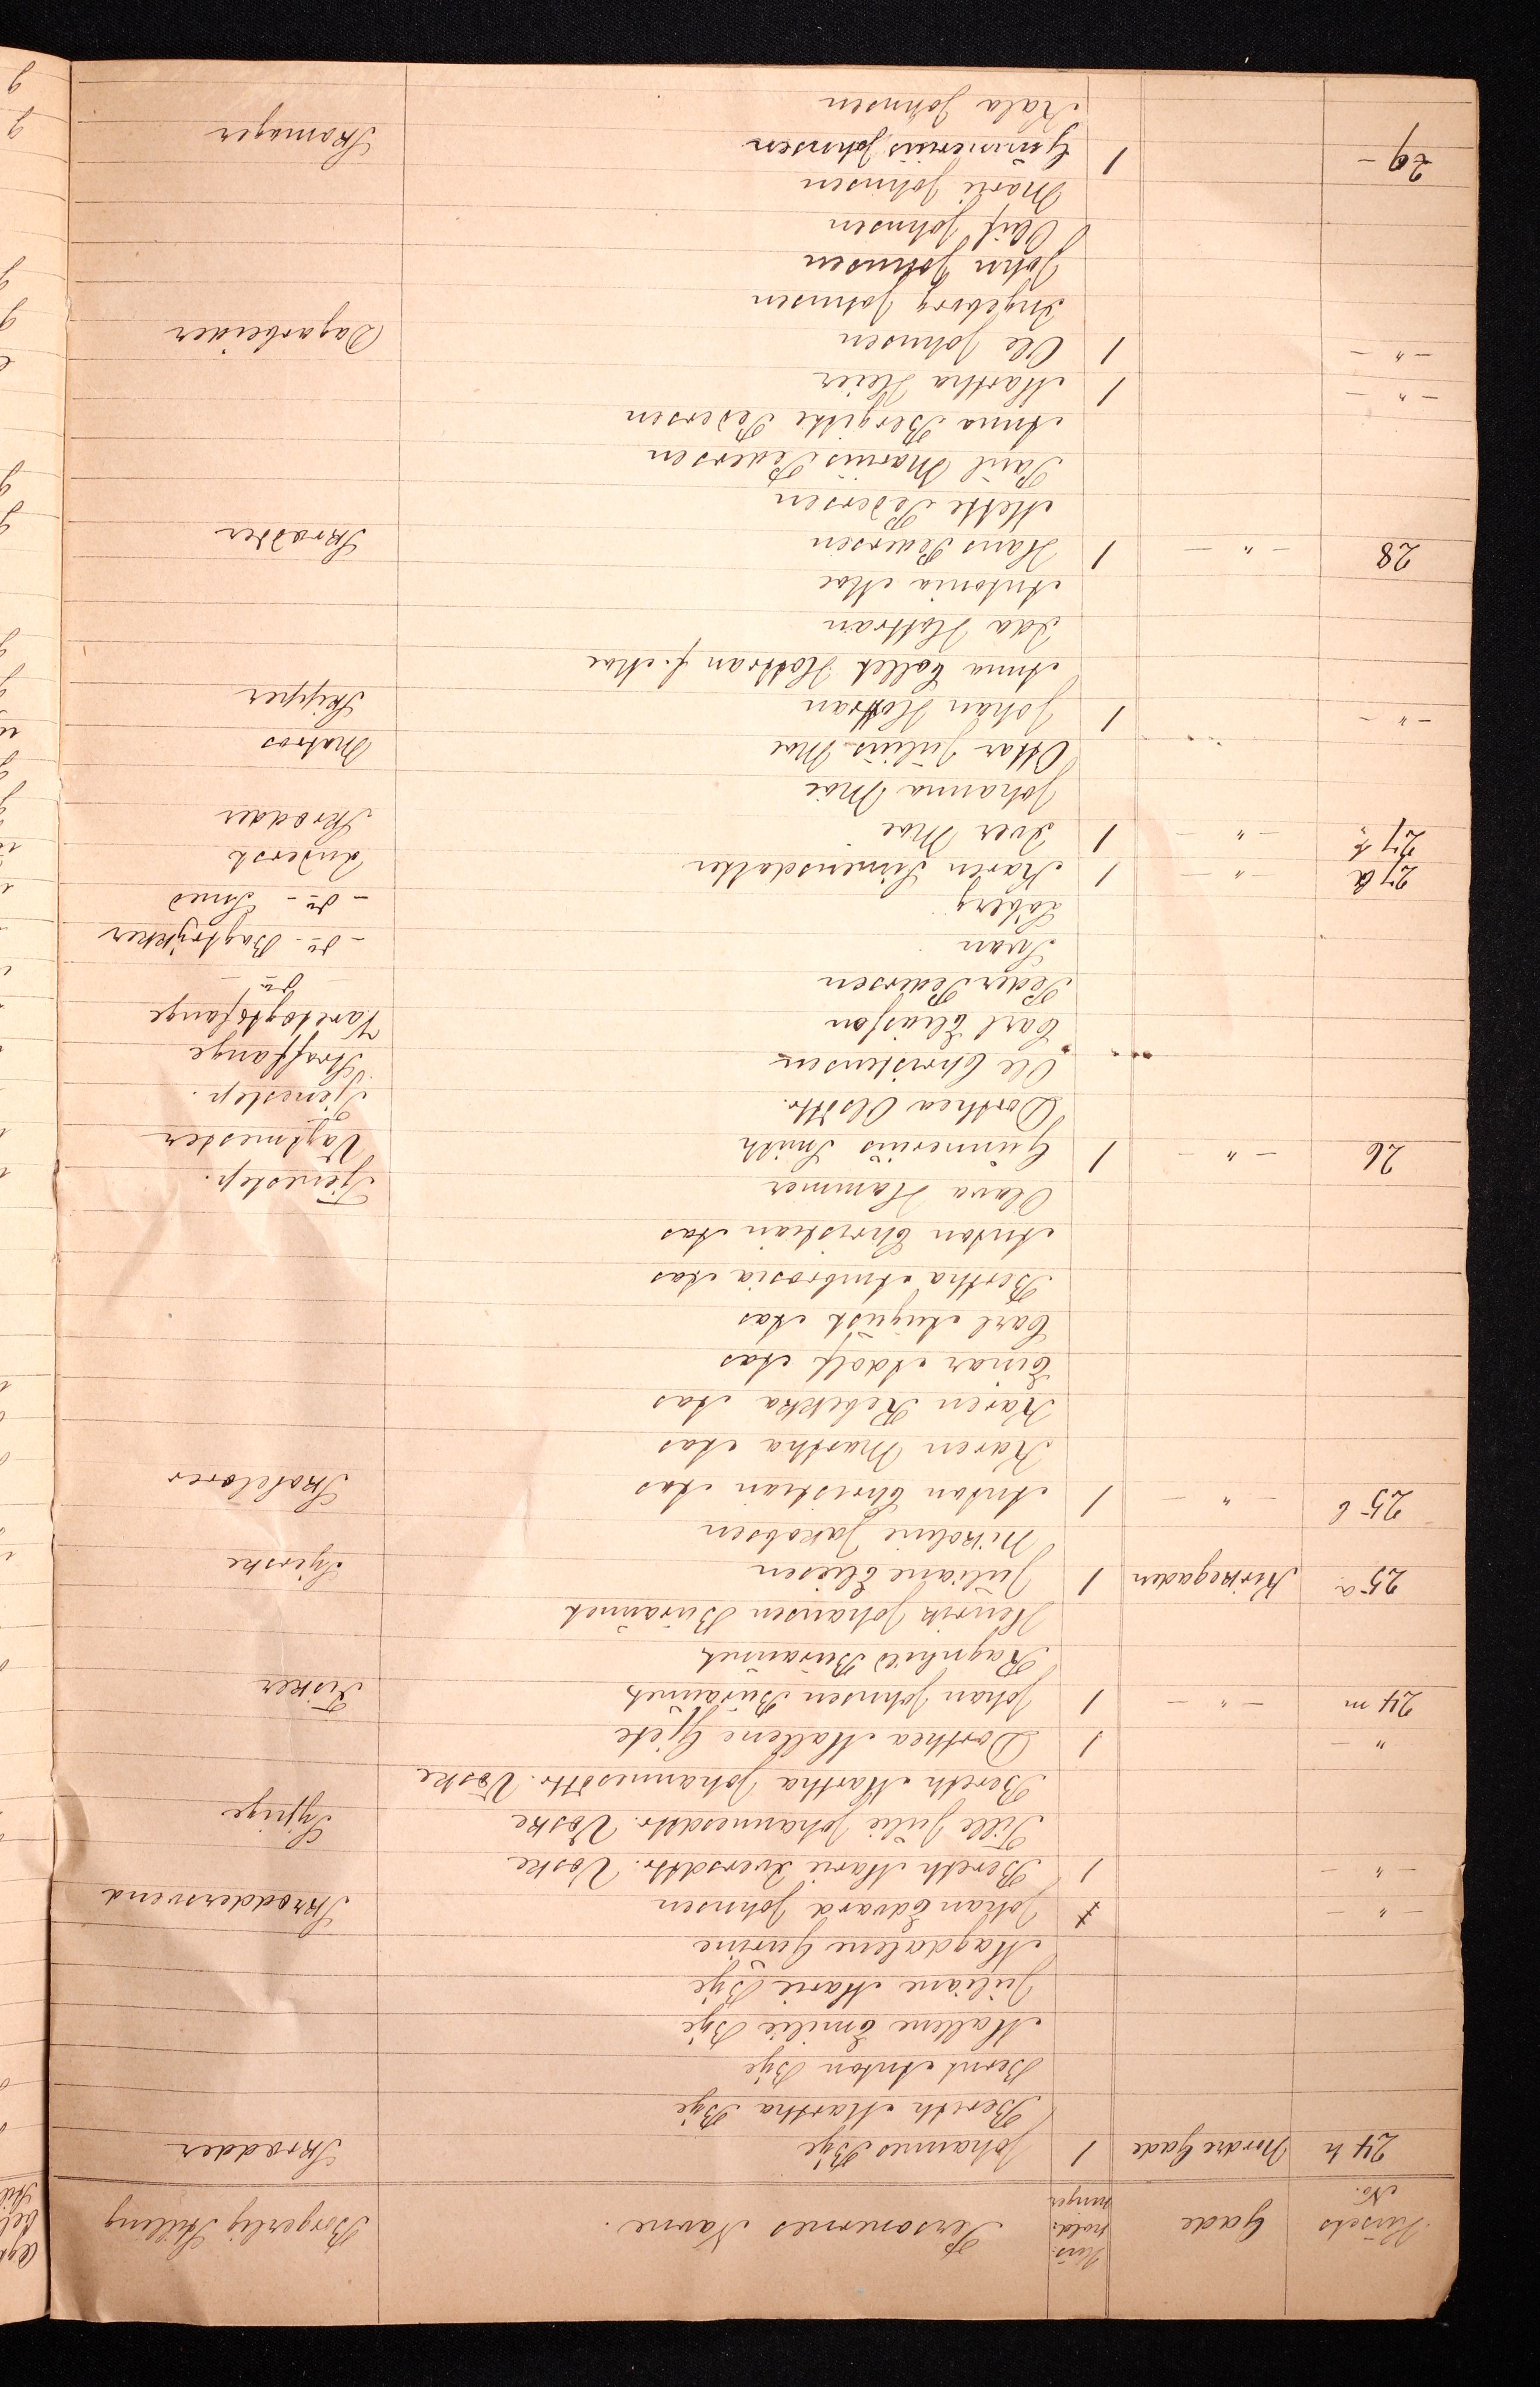 Husets No. Gade Hus: hold: ninger Personernes Navne. Borgerlig Stilling
24 h Nordre Gade 1 Johannes Bÿe Skrædder
Bereth Martha Bÿe
Bernt Anton Bÿe
Mallene Emilie Bÿe
Juliane Marie Bÿe
Magdalene Gurine
- " - 1 Johan Edvard Johnsen Skræddersvend
- " - 1 Bereth Marie Iversdttr. Væske
Tille Julie Johannesdttr. Væske Sypige
Bereth Martha Johannesdttr. Væske
" - 1 Dorthea Mallene Gjete
24 m - " - 1 Johan Johnsen Buraunet Fisker
Ragnhild Buraunet
Henrik Johansen Buraunet
25 a Kirkegaden 1 Juliane Eliesen Syerske
Nikoline Jakobsen
25 b - " - 1 Anton Christian Aas Skolelærer
Karen Martha Aas
Karen Rebekka Aas
Einar Adolf Aas
Carl August Aas
Bertha Ambrosia Aas
Anton Christian Aas
Olava Hammer Tjenestep.
26 - " - 1 Gunnerius Smith Vagtmester
Dorthea Olsdttr. Tjenestep.
Ole Christensen Straffange
Carl Eliasson Varetægtsfange
Peder Pedersen - do -
Svan - do - Bogtrykker
Løberg - do - Smed
27 a - " - 1 Karen Simensdatter Underst.
27 b - " - 1 Iver Moe Skrædder
Johanna Moe
Ottar Julius Moe Matros
- " - 1 Johan Hottran Skipper
Anna Collet Hottran f. Moe
Ida Hottran
Antonia Moe
28 - " - 1 Hans Pedersen Skrædder
Mette Pedersen
Paul Marius Pedersen
Anna Bergitte Pedersen
- " - 1 Martha Heier
- " - 1 Ole Johnsen Dagarbeider
Ingeborg Johnsen
John Johnsen
Oluf Johnsen
Marie Johnsen
29 - 1 Gunnerius Johnsen Skomager
Kala Johnsen